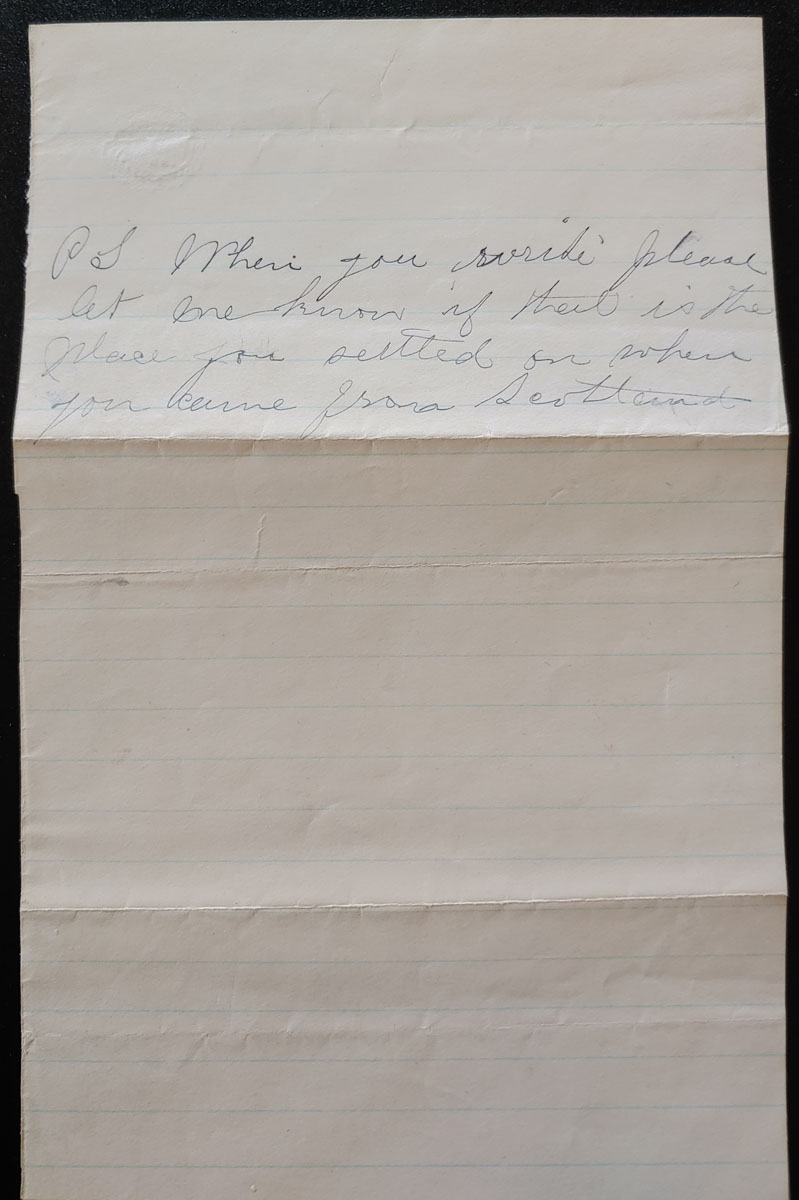 PS When you write please
let me know if that is the
place you settled on when
you came from Scotland